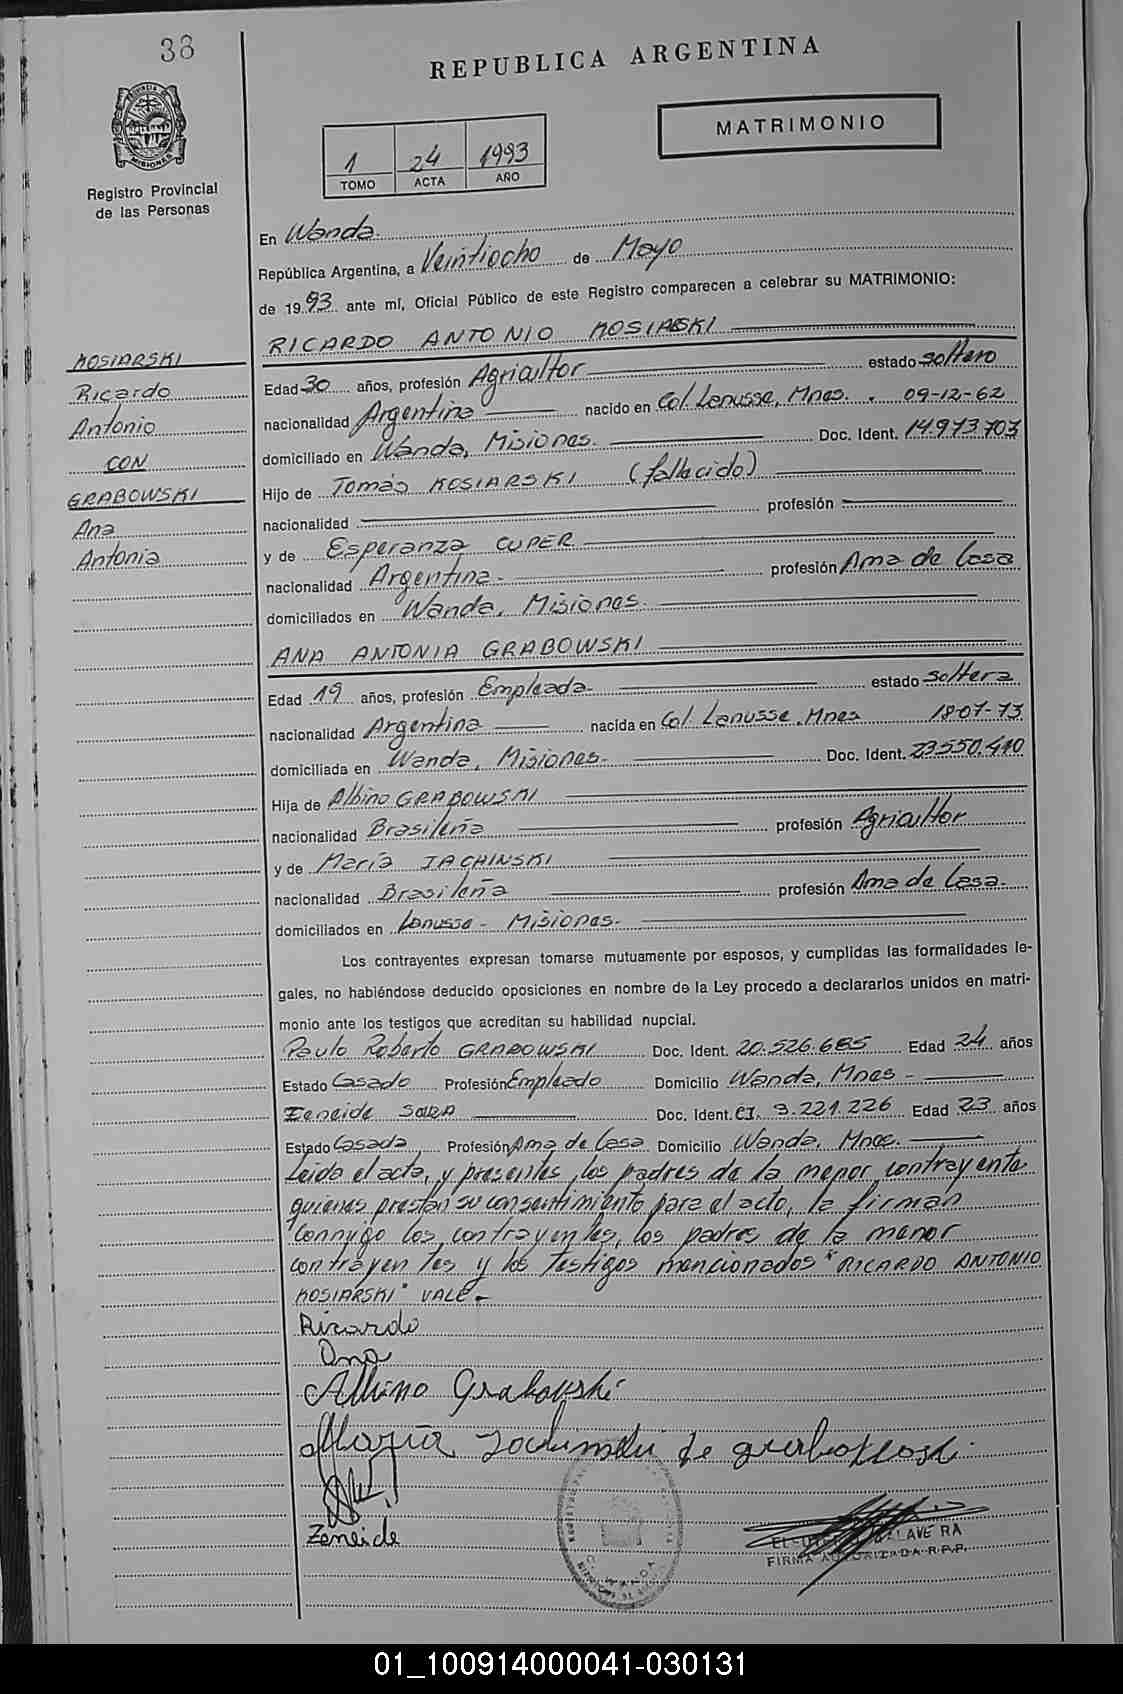 38
REPUBLICA ARGENTINA
MATRIMONIO
1 24 1993
TOMO ACTA AÑO
Registro Provincial
de las Personas
En Wanda.
República Argentina, a Veintiocho de Mayo
de 1993 ante mí, Oficial Público de este Registro comparecen a celebrar su MATRIMONIO:
RICARDO ANTONIO KOSIARSKI
KOSIARSKI
Ricardo
Antonio
CON
GRABOWSKI
Ana
Antonia
Edad 30 años, profesión Agricultor estado soltero
nacionalidad Argentina nacido en Col. Lanusse, Mnes. 09-12-62
domiciliado en Wanda, Misiones. Doc. Ident. 14.973.703
Hijo de Tomás KOSIARSKI (fallecido)
nacionalidad profesión
y de Esperanza CUPER
nacionalidad Argentina.- profesión Ama de Casa
domiciliados en Wanda, Misiones.
ANA ANTONIA GRABOWSKI
Edad 19 años, profesión Empleada.- estado soltera
nacionalidad Argentina nacida en Col. Lanusse, Mnes 18-07-73
domiciliada en Wanda, Misiones.- Doc. Ident. 23.550.410
Hija de Albino GRABOWSKI
nacionalidad Brasileña profesión Agricultor
y de María IACHINSKI
nacionalidad Brasileña profesión Ama de Casa.
domiciliados en Lanusse - Misiones.-
Los contrayentes expresan tomarse mutuamente por esposos, y cumplidas las formalidades le-
gales, no habiéndose deducido oposiciones en nombre de la Ley procedo a declararlos unidos en matri-
monio ante los testigos que acreditan su habilidad nupcial.
Paulo Roberto GRABOWSKI Doc. Ident. 20.526.685 Edad 24 años
Estado Casado Profesión Empleado Domicilio Wanda, Mnes -
Zeneide SARA Doc. Ident. CI. 9.221.226 Edad 23 años
Estado Casada Profesión Ama de Casa Domicilio Wanda, Mnes.
Leida el acta, y presentes los padres de la menor contrayente
quienes prestan su consentimiento para el acto, la firman
conmigo los contrayentes, los padres de la menor
contrayentes y los testigos mencionados "RICARDO ANTONIO
KOSIARSKI" VALE -
Ricardo
Ana
Albino Grabowski
María de
Zeneide
FIRMA AUTORIZADA R.P.P.
01_100914000041-030131